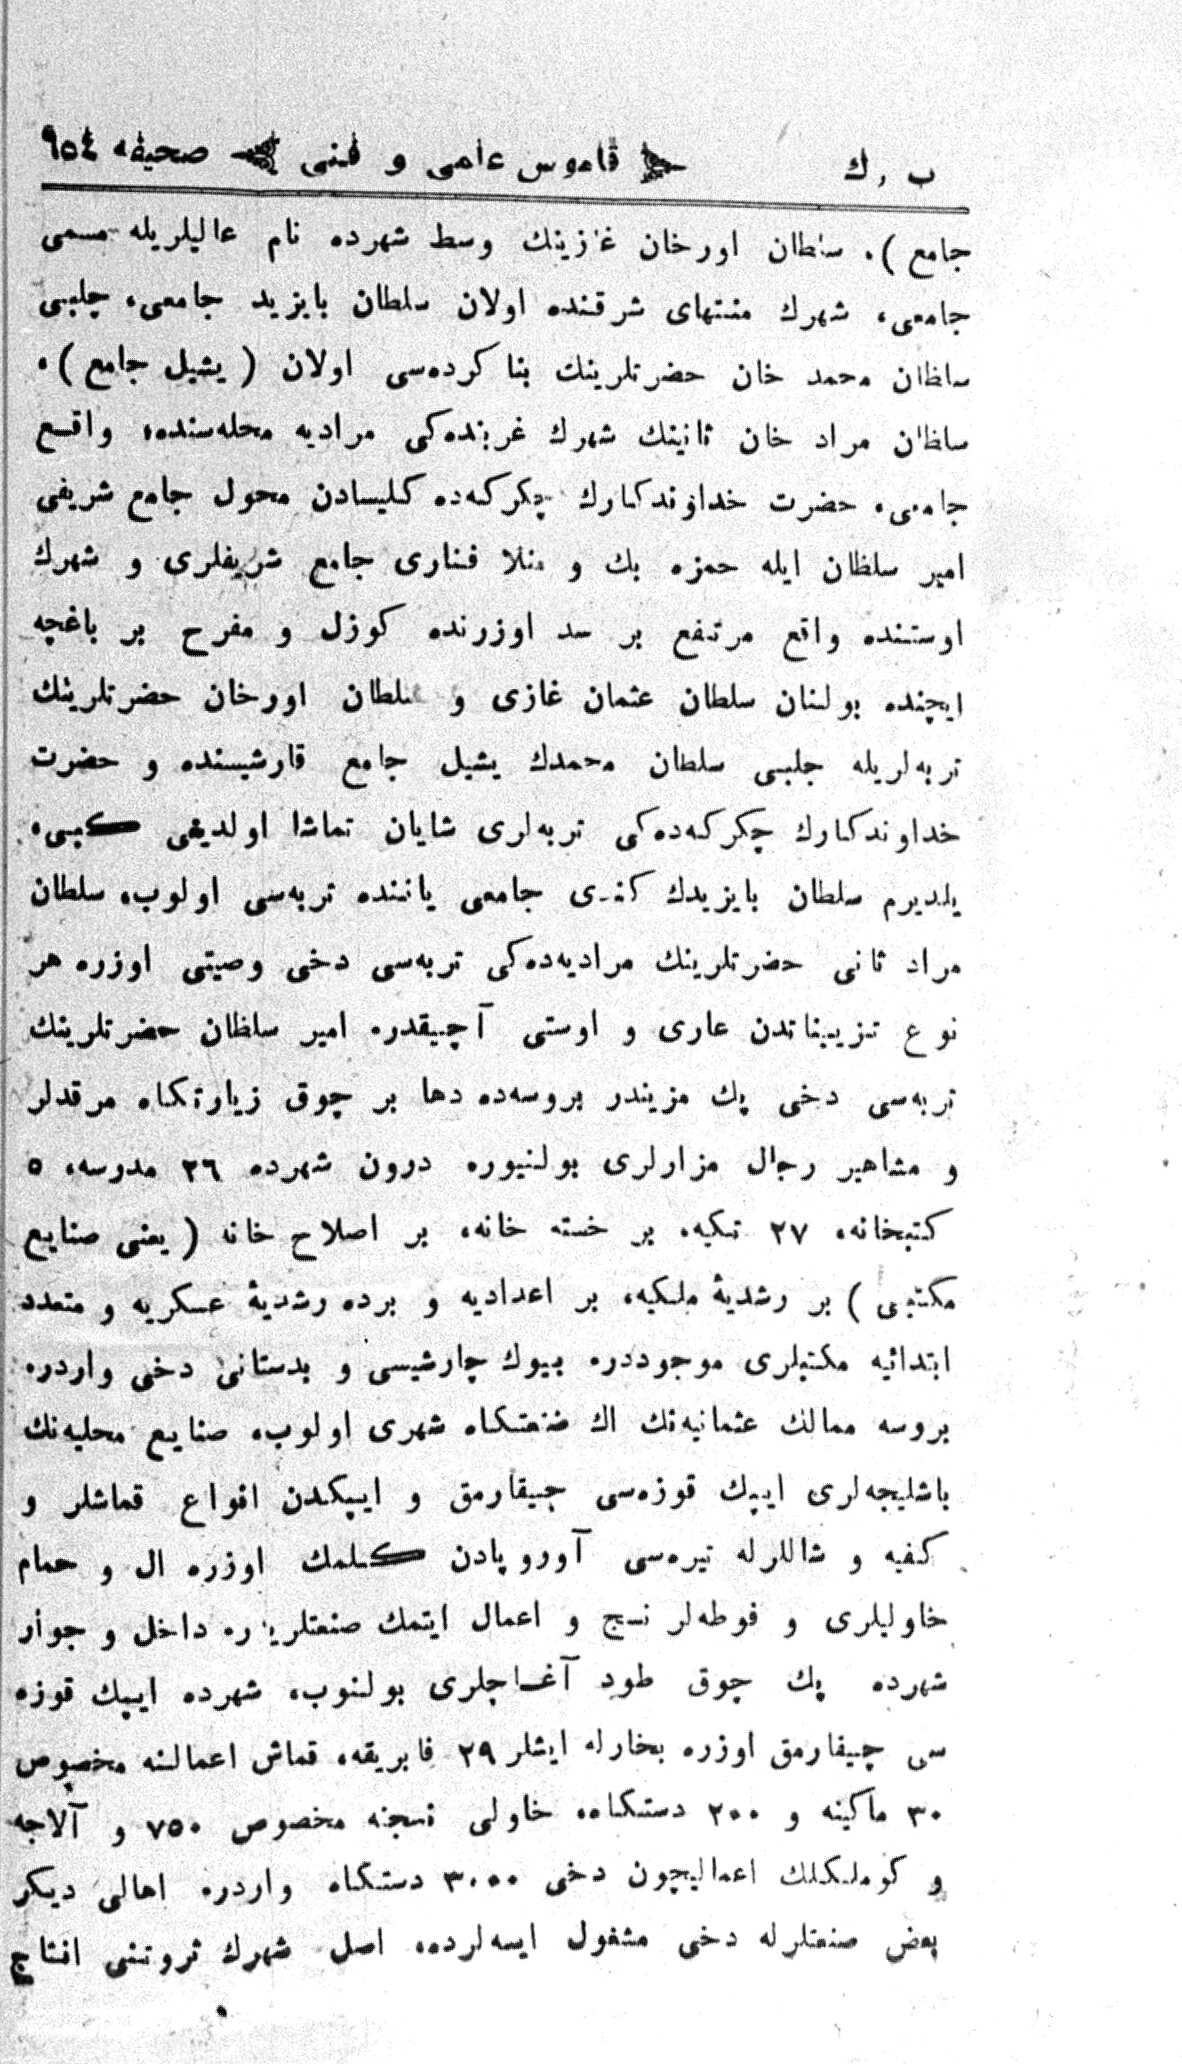 ب . ك قاموس علمی و فنی صحیفه ٩٥٤
جامع ) ، سلطان اورخان غازینك وسط شهرده نام عالیلریله مسمی
جامعی ، شهرك منتهای شرقنده اولان سلطان بایزید جامعی ، چلبی
سلطان محمد خان حضرتلرینك بنا كرده‌سی اولان ( یشیل جامع ) ،
سلطان مراد خان ثانینك شهرك غربنده‌كی مرادیه محله‌سنده واقع
جامعی ، حضرت خداوندكارك چكركه‌ده كلیسادن محول جامع شریفی
امیر سلطان ایله حمزه بك و منلا فناری جامع شریفلری و شهرك
اوستنده واقع مرتفع بر سد اوزرنده كوزل و مفرح بر باغچه
ایچنده بولنان سلطان عثمان غازی و سلطان اورخان حضرتلرینك
تربه‌لریله چلبی سلطان محمدك یشیل جامع قارشیسنده و حضرت
خداوندكارك چكركه‌ده‌كی تربه‌لری شایان تماشا اولدیغی كبی ،
یلدیرم سلطان بایزیدك كندی جامعی یاننده تربه‌سی اولوب ، سلطان
مراد ثانی حضرتلرینك مرادیه‌ده‌كی تربه‌سی دخی وصیتی اوزره هر
نوع تزییناتدن عاری و اوستی آچیقدر . امیر سلطان حضرتلرینك
تربه‌سی دخی پك مزیندر بروسه‌ده دها بر چوق زیارتكاه مرقدلر
و مشاهیر رجال مزارلری بولنیور . درون شهرده ٢٦ مدرسه ، ٥
كتبخانه ، ٢٧ تكیه ، بر خسته خانه ، بر اصلاح خانه ( یعنی صنایع
مكتبی ) بر رشدیهٔ ملكیه ، بر اعدادیه و برده رشدیهٔ عسكریه و متعدد
ابتدائیه مكتبلری موجوددر . بیوك چارشیسی و بدستانی دخی واردر .
بروسه ممالك عثمانیه‌نك اك صنعتكاه شهری اولوب ، صنایع محلیه‌نك
باشلیجه‌لری ایپك قوزه‌سی چیقارمق و ایپكدن انواع قماشلر و
كفیه و شاللرله تیره‌سی آوروپادن كلمك اوزره ال و حمام
خاولیلری و فوطه‌لر نسج و اعمال ایتمك صنعتلریدر . داخل و جوار
شهرده پك چوق طود آغاچلری بولنوب ، شهرده ایپك قوزه
سی چیقارمق اوزره بخارله ایشلر ٢٩ فابریقه ، قماش اعمالنه مخصوص
٣٠ ماكینه و ٢٠٠ دستكاه ، خاولی نسجنه مخصوص ٧٥٠ و آلاجه
و كوملكلك اعمالیچون دخی ٣٠٠٠ دستكاه واردر . اهالی دیكر
بعض صنعتلرله دخی مشغول ایسه‌لرده ، اصل شهرك ثروتنی انتاج